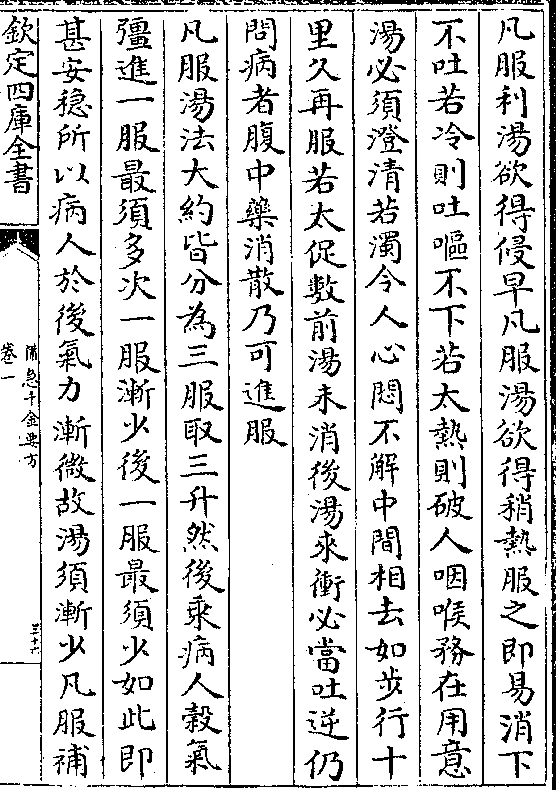 凡服利湯欲得侵早凡服湯欲得稍熱服之即易消下
不吐若冷則吐嘔不下若太熱則破人咽喉務在用意
湯必須澄清若濁令人心悶不解中間相去如步行十
里久再服若太促數前湯未消後湯來衝必當吐逆仍
問病者腹中藥消散乃可進服
凡服湯法大約皆分為三服取三升然後乘病人糓氣
彊進一服最須多次一服漸少後一服最須少如此即
甚安穏所以病人於後氣力漸微故湯須漸少凡服補
欽定四庫全書
備急千金要方
卷一
三十六